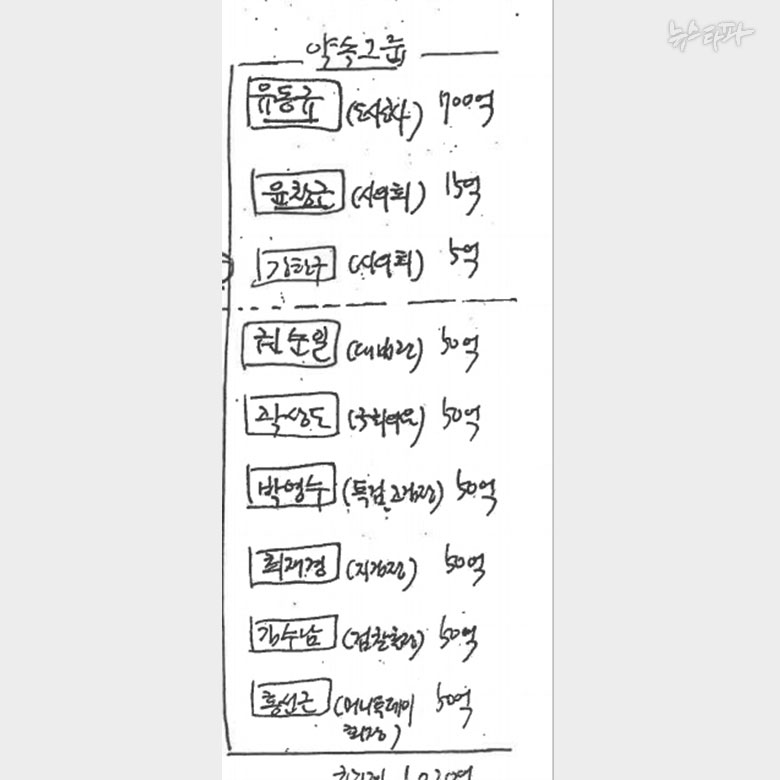 뉴스타파
약속그룹
유동규 (도시공사) 700억
윤창근 (시의회) 15억
강한구 (시의회) 5억
권순일 (대법관) 50억
곽상도 (국회의원) 50억
박영수 (특검 고검장) 50억
최재경 (지검장) 50억
김수남 (검찰총장) 50억
홍선근 (머니투데이 50억
회장)